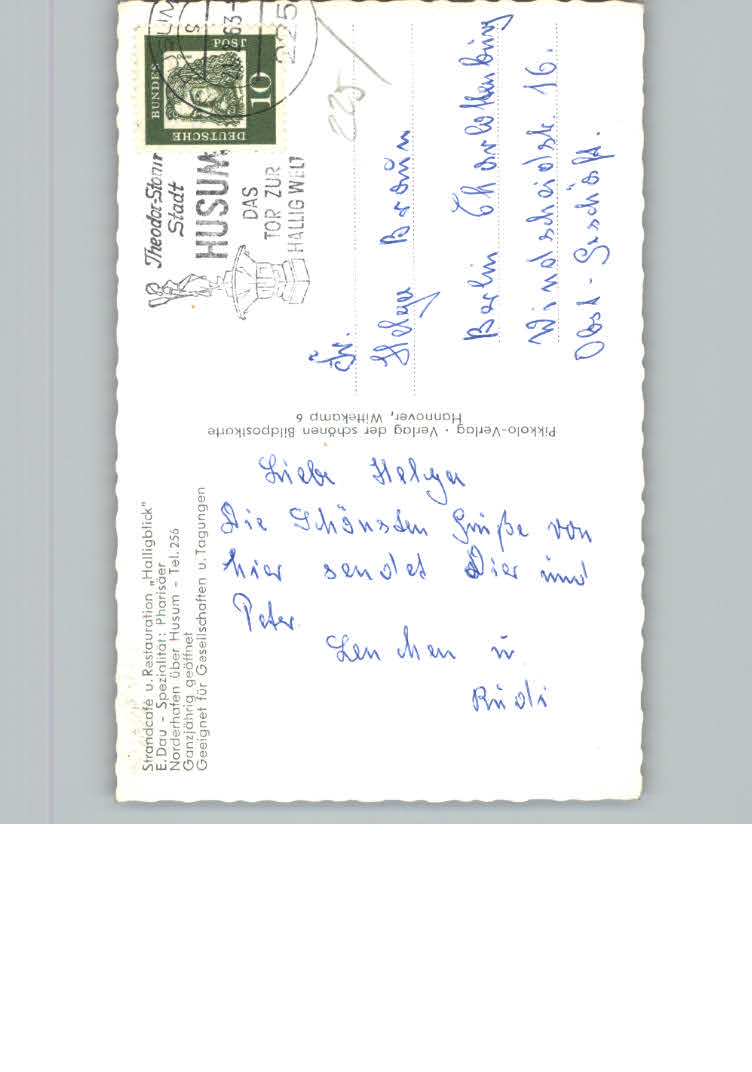 Strandcafé u. Restauration „Halligblick"
E. Dau - Spezialität: Pharisäer
Norderhafen über Husum - Tel. 256
Ganzjährig geöffnet
Geeignet für Gesellschaften u. Tagungen
Liebe Helga
Die Schönsten Grüße von
hier sendet Dier und
Peter
Lenchen u
Rudi
Pikkolo-Verlag · Verlag der schönen Bildpostkarte
Hannover, Wittekamp 6
Theodor-Storm
Stadt
HUSUM
DAS
TOR ZUR
HALLIG WELT
DEUTSCHE
BUNDES
POST
10
63
225
225
Fr.
Helga Braun
Berlin Charlottenburg
Windscheidstr 16.
Obst-Geschäft.